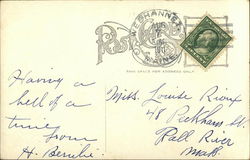 WEBHANNET
AUG
MAINE
Post Card
THIS SPACE FOR ADDRESS ONLY
Having a
hell of a
time
from
H.
Miss. Louise
48 Peckham St.
Fall River
Mass.